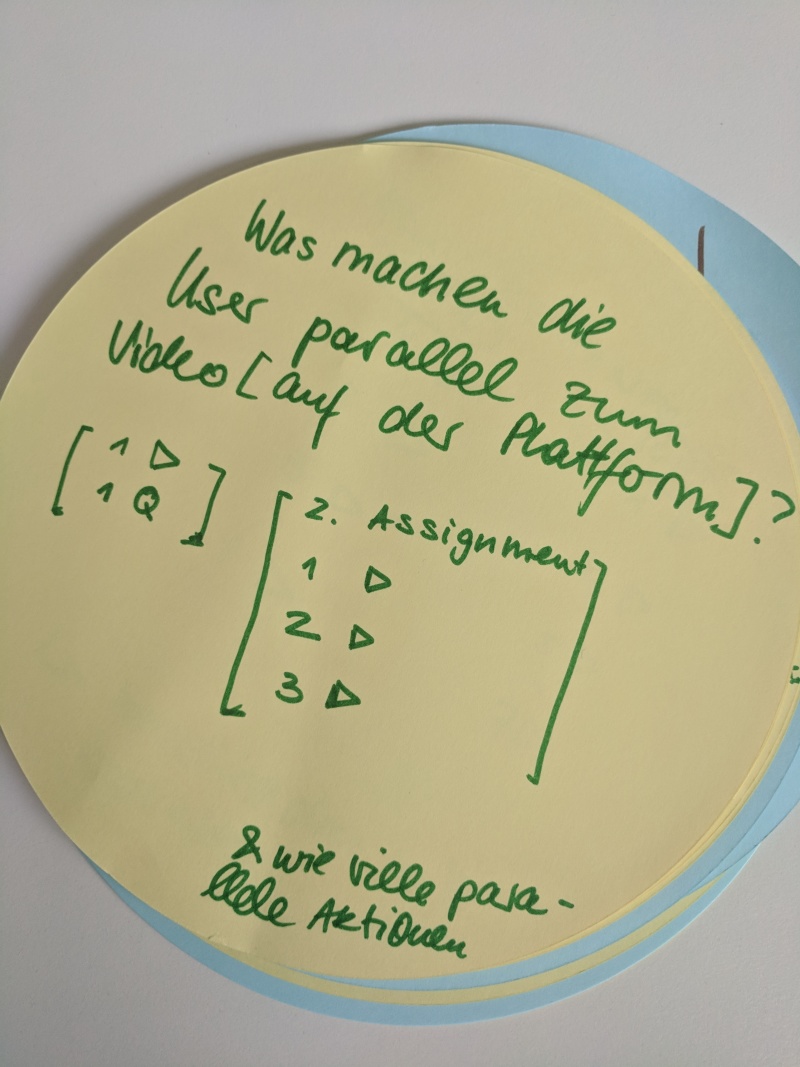 Was machen die
User parallel zum
Video [auf der Plattform]?
[ 1 ▷
1 Q ]
[ 2. Assignment
1 ▷
2 ▷
3 ▷ ]
& wie vielle para-
llele Aktionen